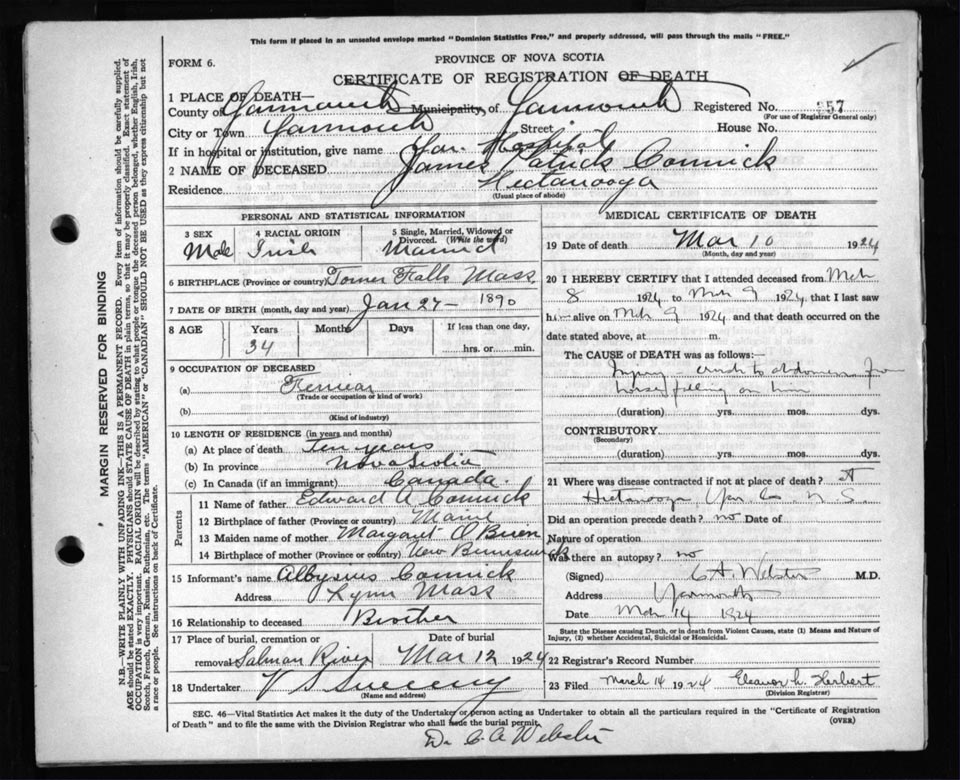 This form if placed in an unsealed envelope marked "Dominion Statistics Free," and properly addressed, will pass through the mails "FREE."
FORM 6.
PROVINCE OF NOVA SCOTIA
CERTIFICATE OF REGISTRATION OF DEATH
1 PLACE OF DEATH—
County of Yarmouth Municipality of Yarmouth Registered No. 357
(For use of Registrar General only)
City or Town Yarmouth Street House No.
If in hospital or institution, give name Yar. Hospital
2 NAME OF DECEASED James Patrick Connick
Residence Hectanooga
(Usual place of abode)
PERSONAL AND STATISTICAL INFORMATION
3 SEX 4 RACIAL ORIGIN 5 Single, Married, Widowed or Divorced. (Write the word)
Male Irish Married
6 BIRTHPLACE (Province or country) Falls Mass
7 DATE OF BIRTH (month, day and year) Jan 27 – 1890
8 AGE Years Months Days If less than one day,
34 hrs. or min.
9 OCCUPATION OF DECEASED
(a)
(Trade or occupation or kind of work)
(b)
(Kind of industry)
10 LENGTH OF RESIDENCE (in years and months)
(a) At place of death Ten years
(b) In province Nova Scotia
(c) In Canada (if an immigrant) Canada.
Parents
11 Name of father Edward A Connick
12 Birthplace of father (Province or country) Maine
13 Maiden name of mother Margaret O'Brien
14 Birthplace of mother (Province or country) New Brunswick
15 Informant's name Connick
Address Lynn Mass
16 Relationship to deceased Brother
17 Place of burial, cremation or removal Salmon River Date of burial Mar 12 1924
18 Undertaker V S Sweeny
(Name and address)
MEDICAL CERTIFICATE OF DEATH
19 Date of death Mar 10 1924
(Month, day and year)
20 I HEREBY CERTIFY that I attended deceased from Mch
8 1924 to Mch 9 1924, that I last saw
him alive on Mch 9 1924 and that death occurred on
date stated above, at m.
The CAUSE of DEATH was as follows:—
Injury crush to abdomen from
horse falling on him
(duration) yrs. mos. dys.
CONTRIBUTORY
(Secondary)
(duration) yrs. mos. dys.
21 Where was disease contracted if not at place of death? At
Hectanooga, Yar Co N S
Did an operation precede death? no Date of
Nature of operation
Was there an autopsy? no
(Signed) C A. Webster M.D.
Address Yarmouth
Date Mch 14 1924
State the Disease causing Death, or in death from Violent Causes, state (1) Means and Nature of Injury, (2) whether Accidental, Suicidal or Homicidal.
22 Registrar's Record Number
23 Filed March 14 1924 Eleanor L. Herbert
(Division Registrar)
SEC. 46—Vital Statistics Act makes it the duty of the Undertaker or person acting as Undertaker to obtain all the particulars required in the "Certificate of Registration
of Death" and to file the same with the Division Registrar who shall issue the burial permit. (OVER)
Dr. C. A Webster
MARGIN RESERVED FOR BINDING
N.B.—WRITE PLAINLY WITH UNFADING INK—THIS IS A PERMANENT RECORD. Every item of information should be carefully supplied.
AGE should be stated EXACTLY. PHYSICIANS should STATE CAUSE OF DEATH in plain terms, so that it may be properly classified. Exact statement of
OCCUPATION is very important. RACIAL ORIGIN will be described by stating to what people or tongue the deceased person belonged, whether English, Irish,
Scotch, French, German, Russian, Ruthenian, etc. The terms "AMERICAN" or "CANADIAN" SHOULD NOT BE USED as they express citizenship but not
a race or people. See instructions on back of Certificate.